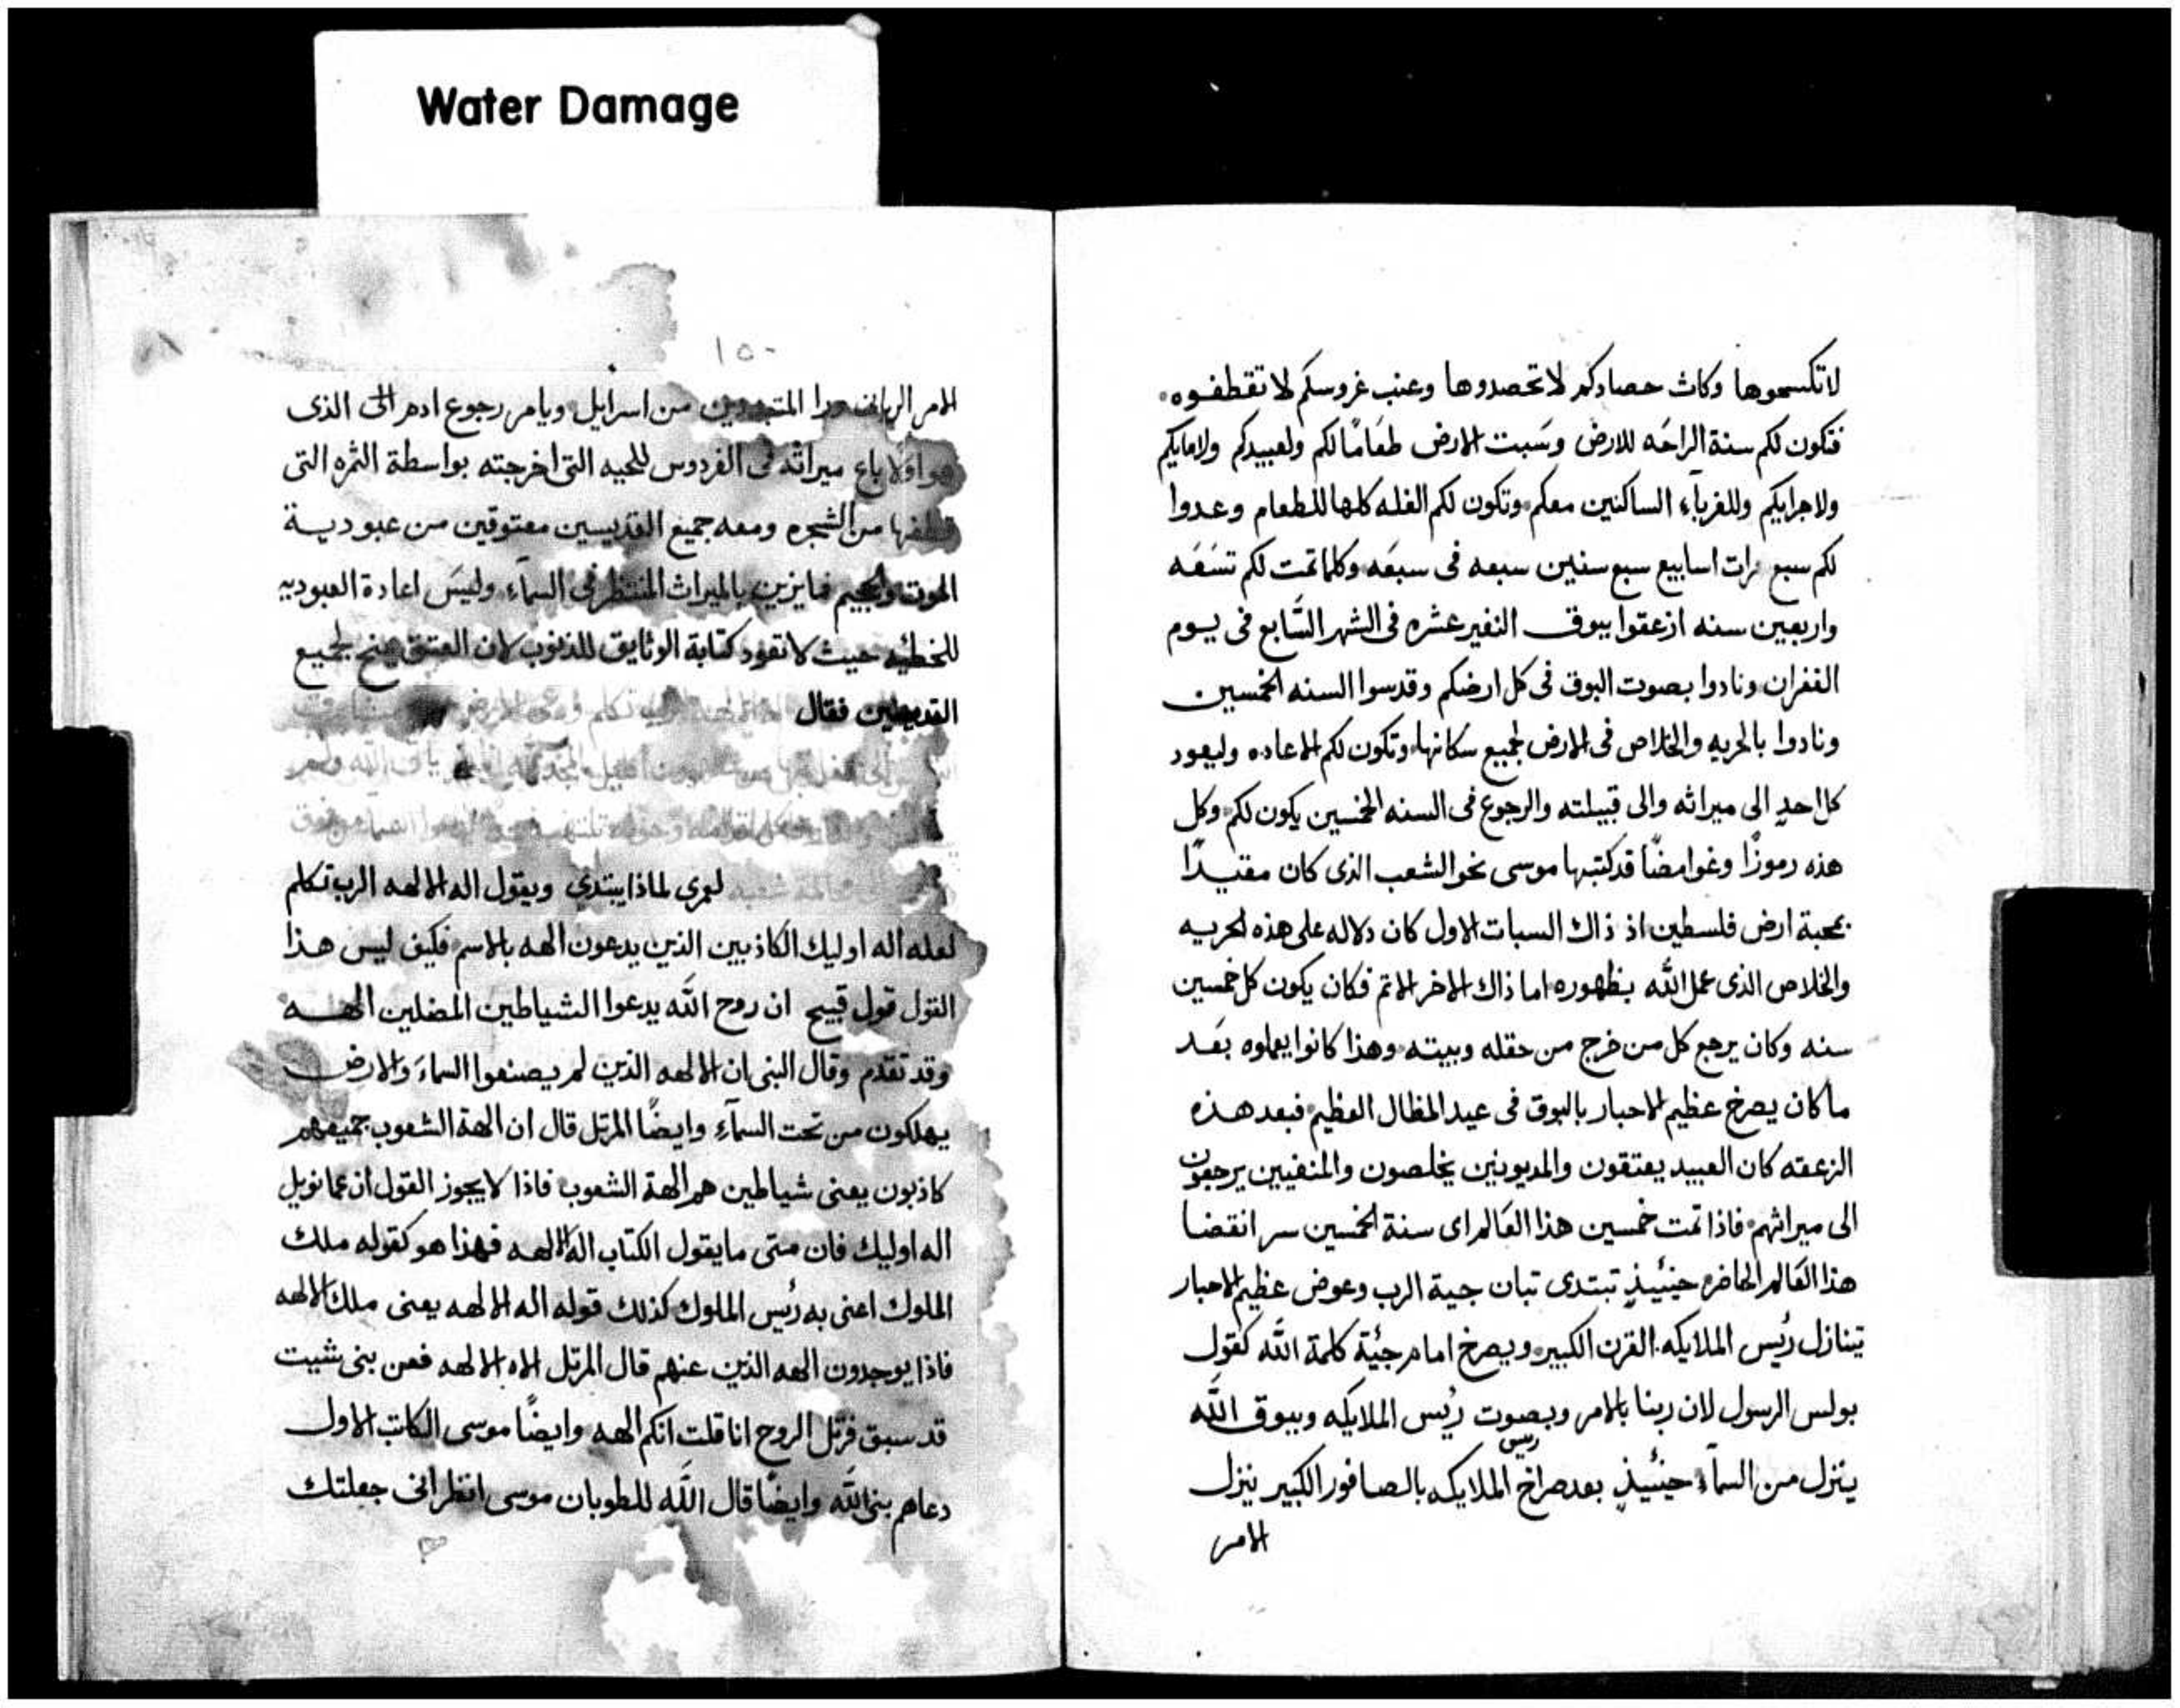 Water Damage
لا تكسحوها وكاث حصادكم لا تحصدوها وعنب غروسكم لا تقطفوه
فتكون لكم سنة الراحه للارض وسبت الارض طعامًا لكم ولعبيدكم ولامايكم
ولاجرايكم وللغرباء الساكنين معكم وتكون لكم الغله كلها للطعام وعدوا
لكم سبع مرات اسابيع سبع سنين سبعه فى سبعه وكلما تمت لكم تسعه
واربعين سنه ازعقوا ببوق النفير عشره فى الشهر السابع فى يوم
الغفران ونادوا بصوت البوق فى كل ارضكم وقدسوا السنه الخمسين
ونادوا بالحريه والخلاص فى الارض لجميع سكانها وتكون لكم الاعاده وليعود
كل احد الى ميراثه والى قبيلته والرجوع فى السنه الخمسين يكون لكم وكل
هذه رموزًا وغوامضًا قد كتبها موسى نحو الشعب الذى كان مقتيدًا
بمحبة ارض فلسطين اذ ذاك السبات الاول كان دلاله على هذه الحريه
والخلاص الذى عمل الله بظهوره اما ذاك الاخر الاتم فكان يكون كل خمسين
سنه وكان يرجع كل من خرج من حقله وبيته وهذا كانوا يعملوه بعد
ما كان يصرخ عظيم الاحبار بالبوق فى عيد المظال العظيم فبعد هذه
الزعقه كان العبيد يعتقون والمديونين يخلصون والمنفيين يرجعون
الى ميراثهم فاذا تمت خمسين هذا العالم اى سنة الخمسين سر انقضا
هذا العالم الحاضره حينئيذٍ تبتدى تبان جية الرب وعوض عظيم الاحبار
تينازل رئيس الملايكه القرن الكبير ويصرخ امام جئية كلمة الله كقول
بولس الرسول لان ربنا بالامر وبصوت رئيس الملايكه وببوق الله
ينزل من السمآء حينئيذٍ بعد صراخ رييس الملايكه بالصافور الكبير ينزل
الامر
١٥٠
الامر الربانى ورا من اسرايل ويامر رجوع ادم الى الذى
هو اولا باع ميراثه فى الفردوس للحيه التى اخرجته بواسطة الثره التى
قطفها من الشجره ومعه جميع القديسين معتوقين من عبودية
الموت والجحيم فايزين بالميراث المنتظر فى السمآء وليس اعادة العبوديه
للخطيه حيث لا تعود كتابة الوثايق للذنوب لان العتق منح لجميع
القديسين فقال تكلم
لعمرى لماذا يبتدى ويقول اله الالهه الرب تكلم
لعله اله اوليك الكاذبين الذين يدعون الهه بالاسم فكيف ليس هذا
القول قول قبيح ان روح الله يدعوا الشياطين المضلين الهه
وقد تقدم وقال النبى ان الالهه الذين لم يصنعوا السماء والارض
يهلكون من تحت السمآء وايضًا المرتل قال ان الهة الشعوب جميعهم
كاذبون يعنى شياطين هم الهة الشعوب فاذا لا يجوز القول ان عمانويل
اله اوليك فان متى ما يقول الكتاب اله الالهه فهذا هو كقوله ملك
الملوك اعنى به رئيس الملوك كذلك قوله اله الالهه يعنى ملك الالهه
فاذا يوجدون الهه الذين عنهم قال المرتل الاه الالهه فعن بنى شيت
قد سبق فرتل الروح انا قلت انكم الهه وايضًا موسى الكاتب الاول
دعاهم بنى الله وايضًا قال الله للطوبان موسى انظر انى جعلتك